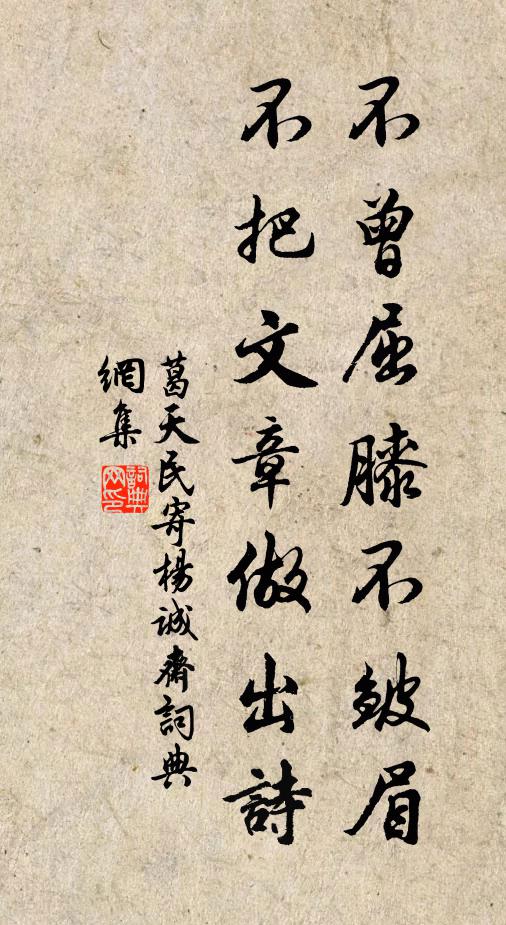 不曾屈膝不皺眉
不把文章做出詩
葛天民寄楊誠齋詞典
網集
詞典
网印